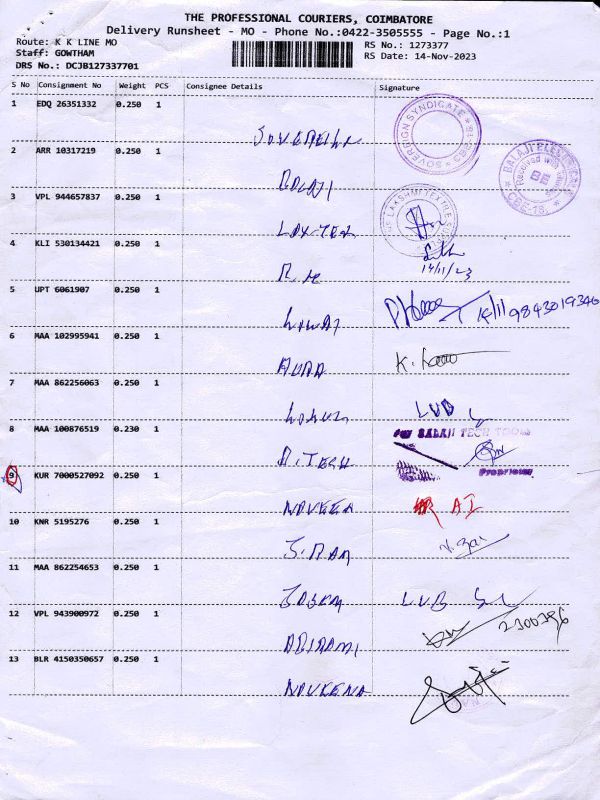 THE PROFESSIONAL COURIERS, COIMBATORE
Delivery Runsheet - MO - Phone No.:0422-3505555 - Page No.:1
Route: K K LINE MO
RS No.: 1273377
Staff: GOWTHAM
RS Date: 14-Nov-2023
DRS No.: DCJB127337701
S No Consignment No Weight PCS Consignee Details Signature
1 EDQ 26351332 0.250 1
SOVEREIGN SYNDICATE
2 ARR 10317219 0.250 1
BALAJI
Received with
CBE-18.
3 VPL 944657837 0.250 1
LAX-TEX
4 KLI 530134421 0.250 1
14/11/23
5 UPT 6061907 0.250 1
9843019346
6 MAA 102995941 0.250 1
AURA
7 MAA 862256063 0.250 1
LVB
8 MAA 100876519 0.230 1
For BALAJI TECH TOOLS
B.TECH
Proprietor
9 KUR 7000527092 0.250 1
NAVEEN
10 KNR 5195276 0.250 1
11 MAA 862254653 0.250 1
LVB
12 VPL 943900972 0.250 1
ABIRAMI
2300396
13 BLR 4150350657 0.250 1
NAVEENA